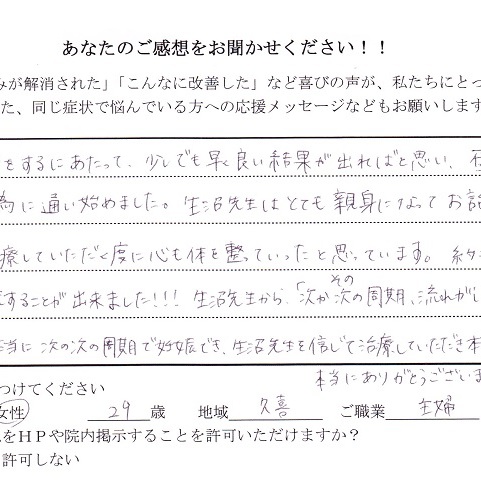 あなたのご感想をお聞かせください!!
みが解消された」「こんなに改善した」など喜びの声が、私たちにとっ
た、同じ症状で悩んでいる方への応援メッセージなどもお願いします
をするにあたって、少しでも早く良い結果が出ればと思い、
為に通い始めました。生沼先生はとても親身になってお話
療していただく度に心も体を整っていったと思っています。
することが出来ました!!!生沼先生から、「次か次のその周期、流れがし
当に次の次の周期で妊娠でき、生沼先生を信じて治療していただき本
本当にありがとうございま
つけてください
女性 29歳 地域 久喜 ご職業 主婦
をHPや院内掲示することを許可いただけますか?
許可しない